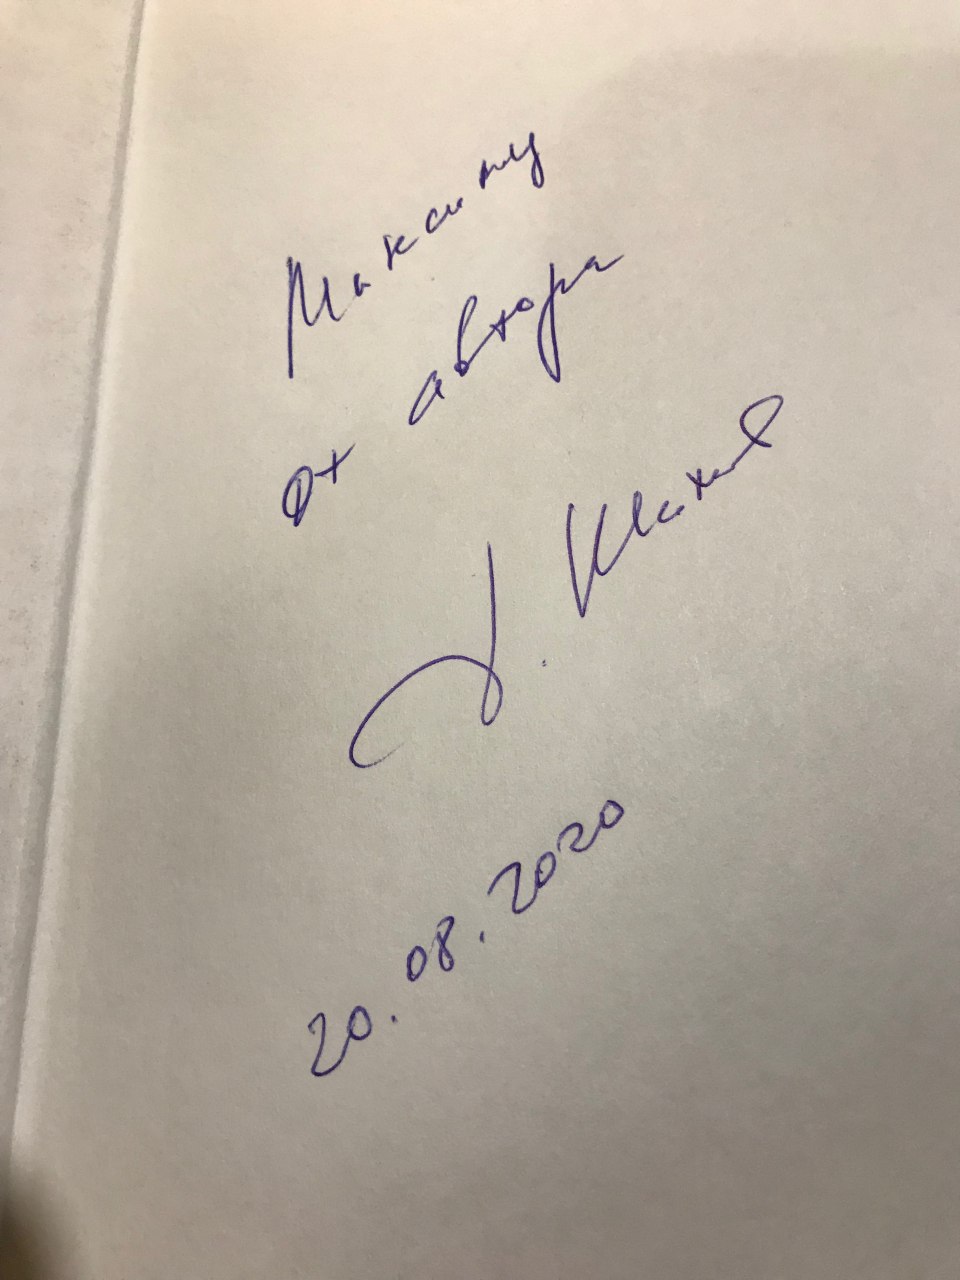 Максиму
от автора
20.08.2020